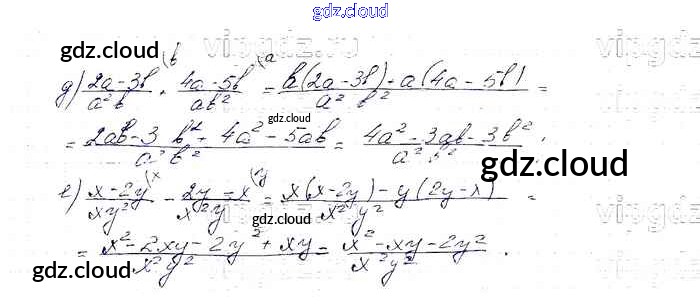 gdz.cloud
vipgdz.ru
gdz.cloud gdz.cloud
д) (2a-3b)/(a²b) + (4a-5b)/(ab²) = (b(2a-3b)+a(4a-5b))/(a²b²) =
gdz.cloud
= (2ab-3b²+4a²-5ab)/(a²b²) = (4a²-3ab-3b²)/(a²b²).
gdz.cloud
е) (x-2y)/(xy²) - (2y-x)/(x²y) = (x(x-2y)-y(2y-x))/(x²y²) =
gdz.cloud
= (x²-2xy-2y²+xy)/(x²y²) = (x²-xy-2y²)/(x²y²).
gdz.cloud gdz.cloud